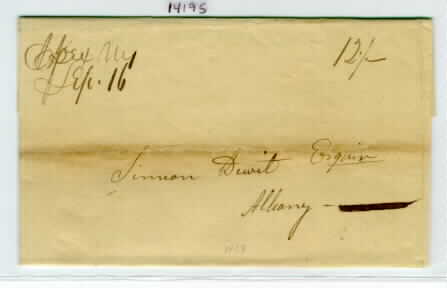 14195
Apex NY
Sep. 16
12½
Simeon Dewit Esquire
Albany